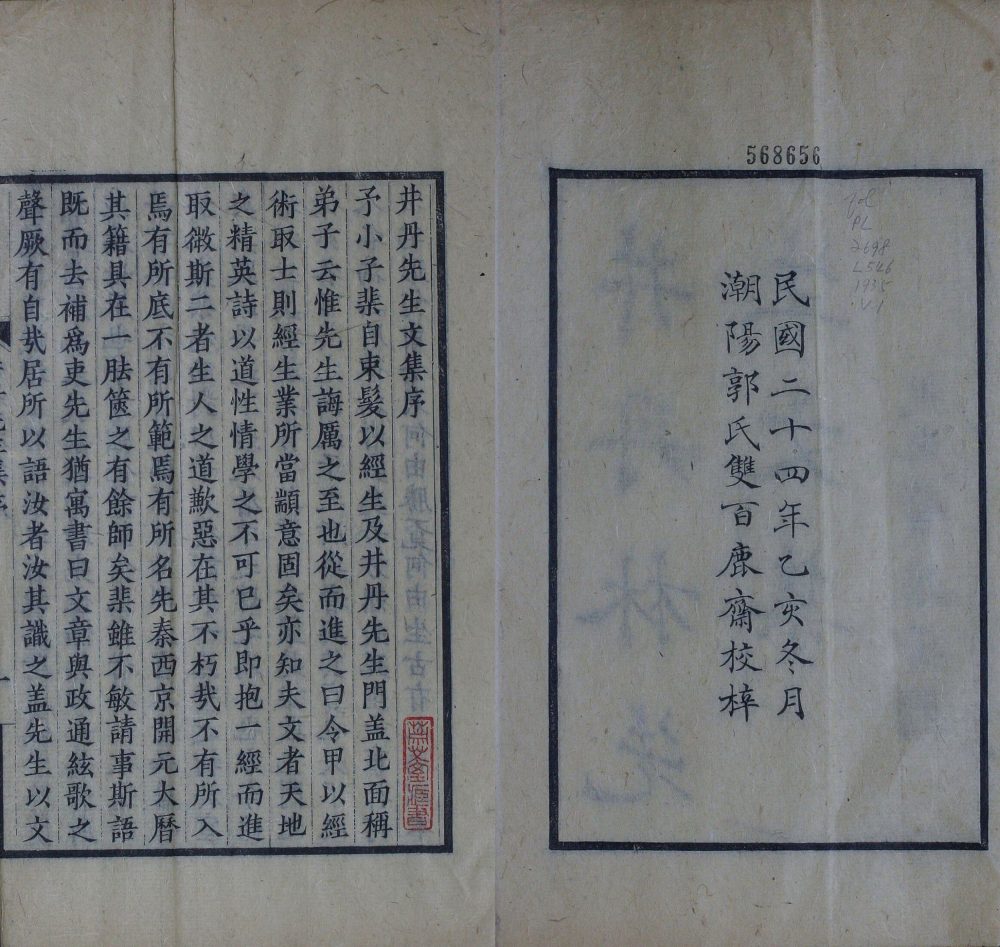 568656
PL
2698
L526
1935
V.1
民國二十四年乙亥冬月
潮陽郭氏雙百鹿齋校梓
井丹先生文集序
予小子棐自束髮以經生及井丹先生門盖北面稱
弟子云惟先生誨厲之至也從而進之曰令甲以經
術取士則經生業所當顓意固矣亦知夫文者天地
之精英詩以道性情學之不可已乎即抱一經而進
取微斯二者生人之道歉惡在其不朽㢤不有所入
焉有所底不有所範焉有所名先秦西京開元大曆
其籍具在一胠篋之有餘師矣棐雖不敏請事斯語
既而去補爲吏先生猶寓書曰文章與政通絃歌之
聲厥有自㢤居所以語汝者汝其識之盖先生以文